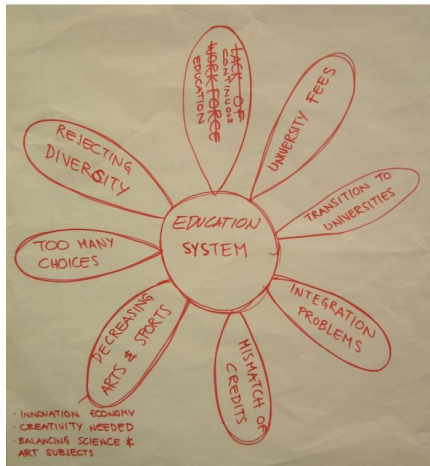 LACK OF
CONTINUOUS
WORK FORCE
EDUCATION
UNIVERSITY FEES
TRANSITION TO
UNIVERSITIES
INTEGRATION
PROBLEMS
MISMATCH OF
CREDITS
DECREASING
ARTS & SPORTS
TOO MANY
CHOICES
REJECTING
DIVERSITY
EDUCATION
SYSTEM
· INNOVATION ECONOMY
· CREATIVITY NEEDED
· BALANCING SCIENCE &
ART SUBJECTS